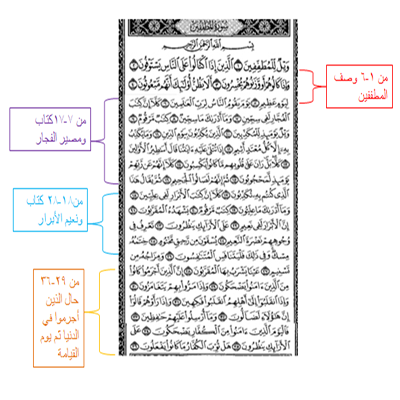 سورة المطففين
بسم الله الرحمن الرحيم
ويل للمطففين الذين إذا اكتالوا على الناس يستوفون
وإذا كالوهم أو وزنوهم يخسرون ألا يظن أولئك أنهم مبعوثون
ليوم عظيم يوم يقوم الناس لرب العالمين كلا إن كتاب
الفجار لفي سجين وما أدراك ما سجين كتاب مرقوم
ويل يومئذ للمكذبين الذين يكذبون بيوم الدين وما يكذب
به إلا كل معتد أثيم إذا تتلى عليه آياتنا قال أساطير الأولين
كلا بل ران على قلوبهم ما كانوا يكسبون كلا إنهم عن ربهم
يومئذ لمحجوبون ثم إنهم لصالوا الجحيم ثم يقال هذا
الذي كنتم به تكذبون كلا إن كتاب الأبرار لفي عليين
وما أدراك ما عليون كتاب مرقوم يشهده المقربون
إن الأبرار لفي نعيم على الأرائك ينظرون تعرف في
وجوههم نضرة النعيم يسقون من رحيق مختوم ختامه
مسك وفي ذلك فليتنافس المتنافسون ومزاجه من
تسنيم عينا يشرب بها المقربون إن الذين أجرموا كانوا
من الذين آمنوا يضحكون وإذا مروا بهم يتغامزون
وإذا انقلبوا إلى أهلهم انقلبوا فكهين وإذا رأوهم قالوا
إن هؤلاء لضالون وما أرسلوا عليهم حافظين
فاليوم الذين آمنوا من الكفار يضحكون على
الأرائك ينظرون هل ثوب الكفار ما كانوا يفعلون
من ١-٦ وصف
المطففين
من ٧-١٧كتاب
ومصير الفجار
من ١٨-٢٨ كتاب
ونعيم الأبرار
من ٢٩-٣٦
حال الذين
أجرموا في
الدنيا ثم يوم
القيامة